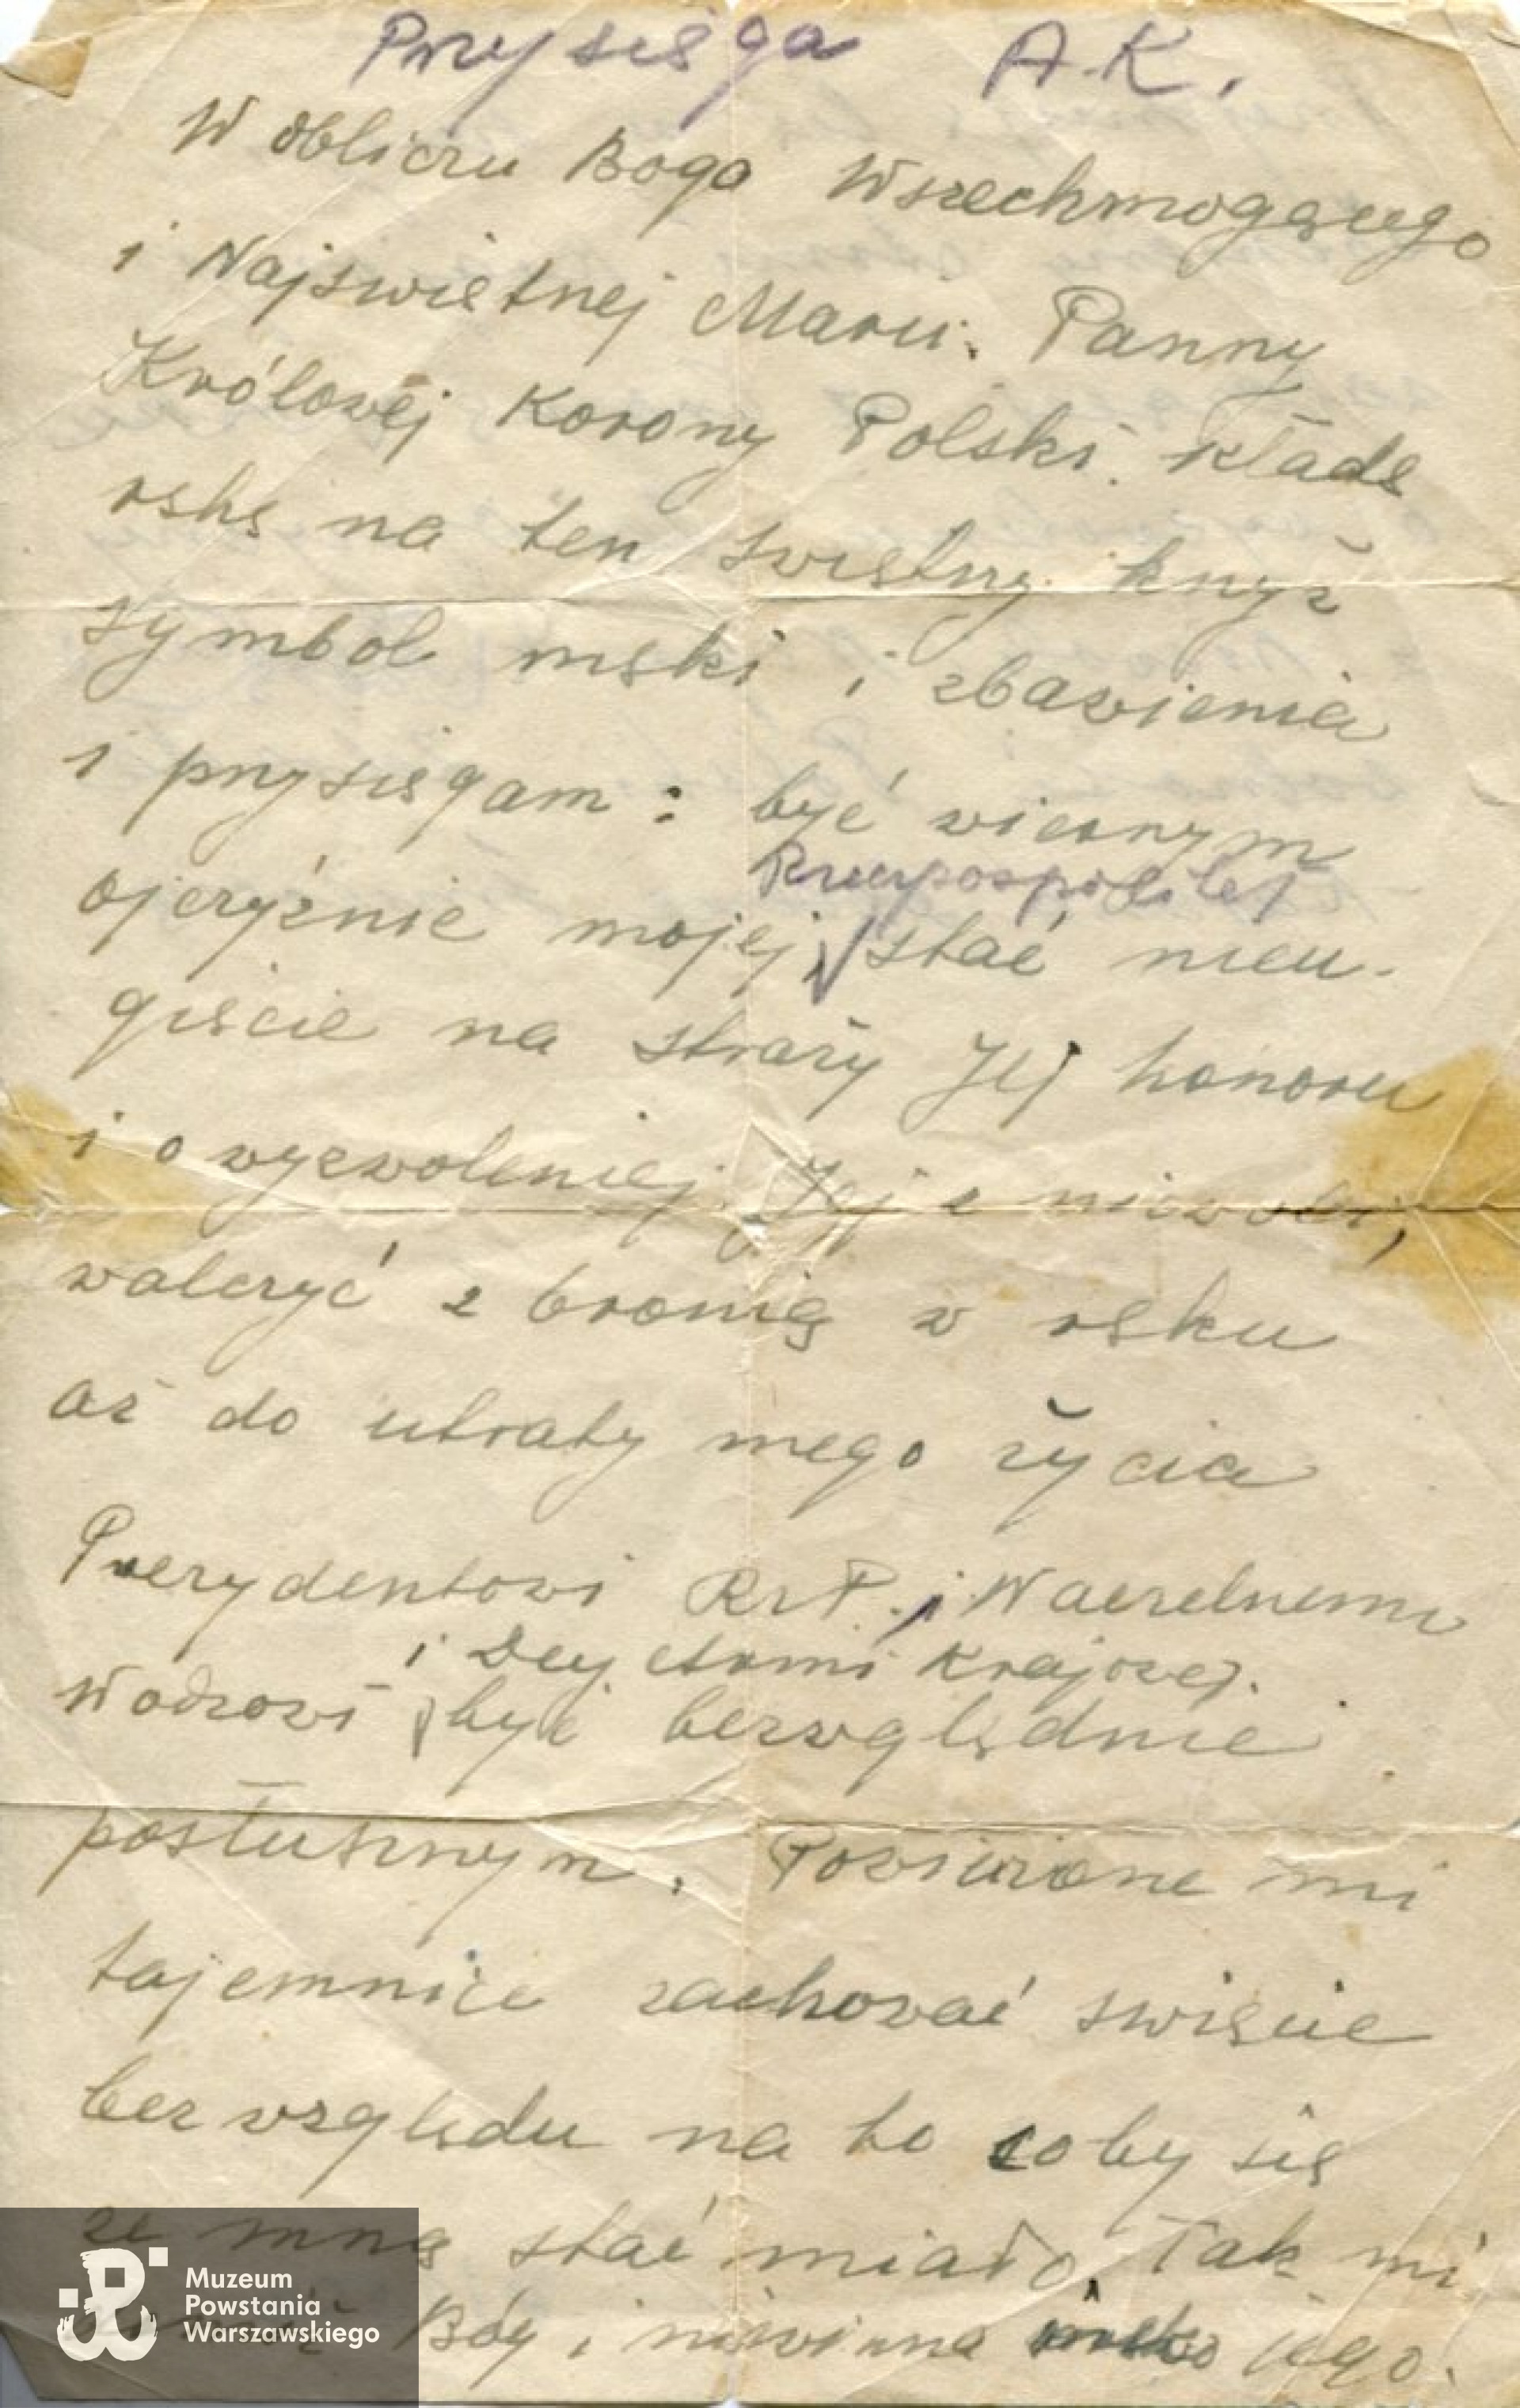 Przysięga A.K.
W obliczu Boga Wszechmogącego
i Najswiętnej Marii. Panny
Królowej Korony Polski. kładę
rękę na ten swiętny krzyż
symbol męki i zbawienia
i przysięgam: być wiernym
Rzeczpospolitej
ojczyźnie mojej, stać nieu-
gięcie na straży Jej honoru
i o wyzwoleniej Jej z niewoli,
walczyć z bronią w ręku
aż do utraty mego życia
Prezydentowi Rz.P. i Naczelnemu
i Dcy. Armi Krajowej.
Wodzowi być bezwględnie
posłusznym. Powierzone mi
tajemnice zachować swięcie
bez względu na to coby się
ze mną stać miało. Tak mi
Bóg i niewinna męka jego.
Muzeum
Powstania
Warszawskiego